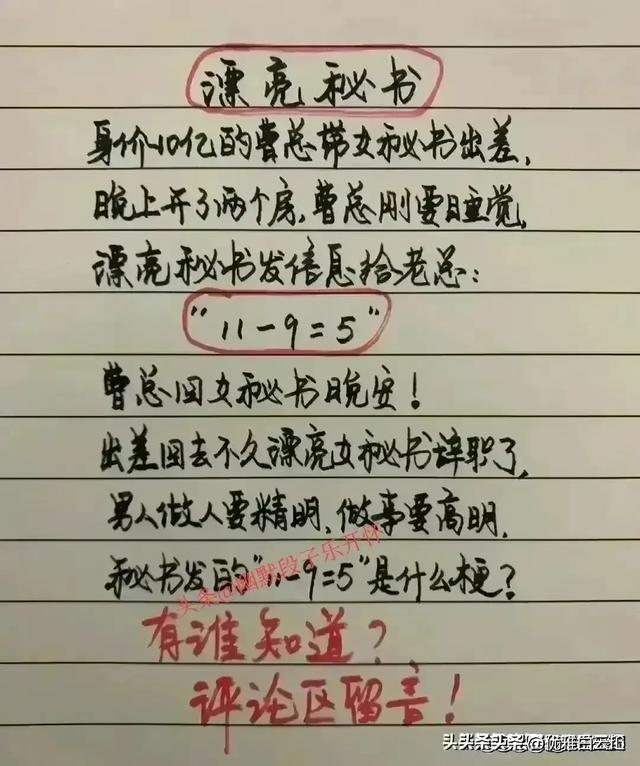 漂亮秘书
身价10亿的曹总带女秘书出差,
晚上开了两个房,曹总刚要睡觉,
漂亮秘书发信息给老总:
"11-9=5"
曹总回女秘书晚安!
出差回去不久漂亮女秘书辞职了,
男人做人要精明,做事要高明,
秘书发的"11-9=5"是什么梗?
头条@幽默段子乐开怀
有谁知道?
评论区留言!